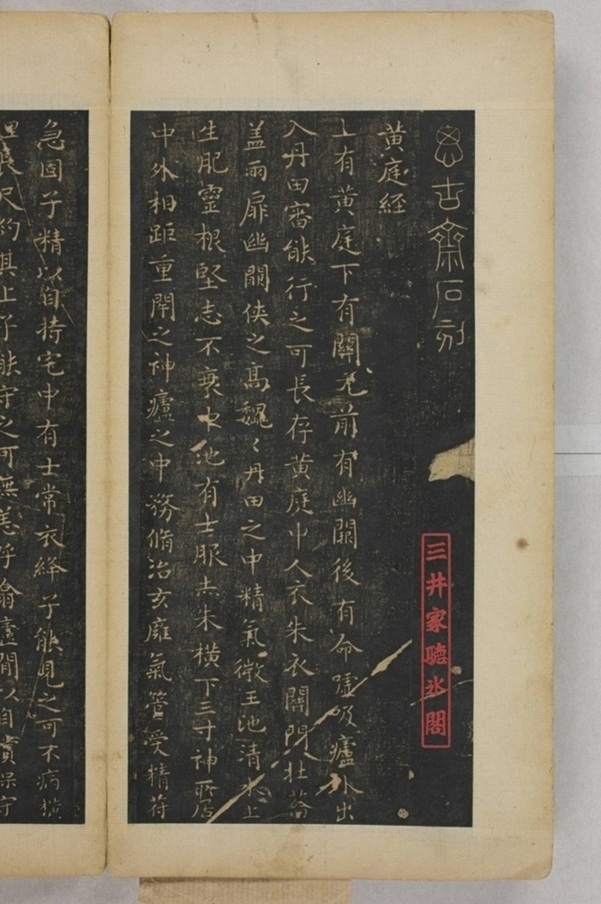 思古齋石刻
黄庭經
上有黄庭下有關元前有幽闕後有命噓吸廬外出
入丹田審能行之可長存黄庭中人衣朱衣關門壯籥
蓋兩扉幽闕俠之髙巍〻丹田之中精氣微玉池清水上
生肥靈根堅志不衰中池有士服赤朱横下三寸神所居
中外相距重閇之神廬之中務脩治玄廱氣管受精符
急固子精以自持宅中有士常衣絳子能見之可不病横
理長尺約其上子能守之可無恙呼噏廬間以自償保守
三井家聽氷閣